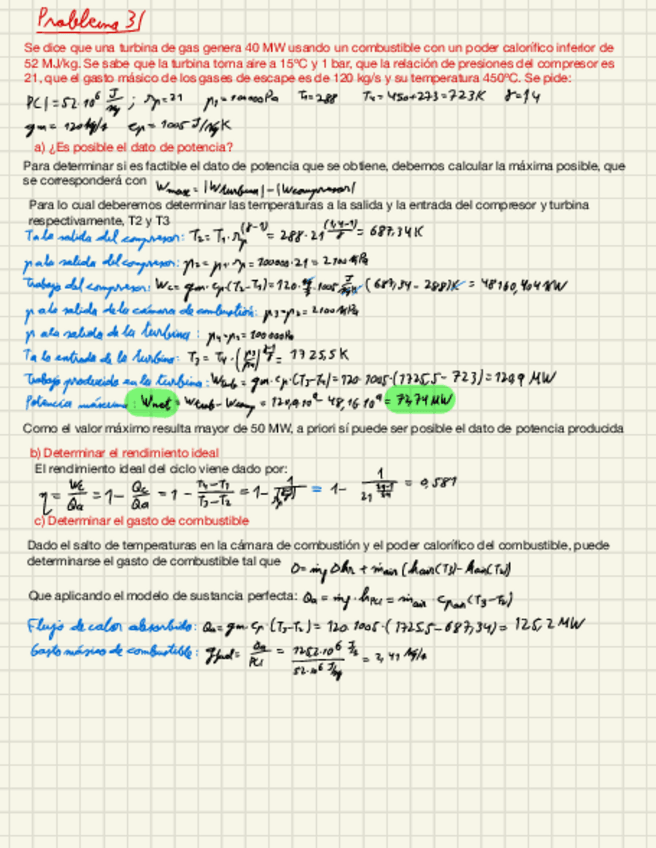 Problema 31
Se dice que una turbina de gas genera 40 MW usando un combustible con un poder calorífico inferior de
52 MJ/kg. Se sabe que la turbina toma aire a 15ºC y 1 bar, que la relación de presiones del compresor es
21, que el gasto másico de los gases de escape es de 120 kg/s y su temperatura 450ºC. Se pide:
PCI = 52·10⁶ J/kg ; rp = 21 p₁ = 100000Pa T₁ = 288 T₄ = 450+273 = 723K γ = 1,4
gm = 120 kg/s cp = 1005 J/kgK
a) ¿Es posible el dato de potencia?
Para determinar si es factible el dato de potencia que se obtiene, debemos calcular la máxima posible, que
se corresponderá con Wmax = |Wturbina| - |Wcompresor|
Para lo cual deberemos determinar las temperaturas a la salida y la entrada del compresor y turbina
respectivamente, T2 y T3
T a la salida del compresor: T₂ = T₁·rp^((γ-1)/γ) = 288·21^((1,4-1)/γ) = 687,34K
p a la salida del compresor: p₂ = p₁·rp = 100000·21 = 2100 kPa
Trabajo del compresor: Wc = gm·cp(T₂-T₁) = 120 kg/s · 1005 J/kgK · (687,34 - 288)K = 48160,404 kW
p a la salida de la cámara de combustión: p₃ = p₂ = 2100 kPa
p a la salida de la turbina: p₄ = p₁ = 100000Pa
T a la entrada de la turbina: T₃ = T₄·(p₃/p₄)^((γ-1)/γ) = 1725,5 K
Trabajo producido en la turbina: Wturb = gm·cp·(T₃-T₄) = 120·1005·(1725,5 - 723) = 120,9 MW
Potencia máxima: Wnet = Wturb - Wcomp = - 48,16·10⁶ = 72,74 MW
Como el valor máximo resulta mayor de 50 MW, a priori sí puede ser posible el dato de potencia producida
b) Determinar el rendimiento ideal
El rendimiento ideal del ciclo viene dado por:
η = = 1 - Qc/Qa = 1 - = 1 - = 1 - = 0,581
c) Determinar el gasto de combustible
Dado el salto de temperaturas en la cámara de combustión y el poder calorífico del combustible, puede
determinarse el gasto de combustible tal que
Que aplicando el modelo de sustancia perfecta:
Flujo de calor absorbido: Qa = gm·cp·(T₃-T₂) = 120·1005·(1725,5 - 687,34) = 125,2 MW
Gasto másico de combustible: gfuel = Qa/PCI = = 2,41 kg/s